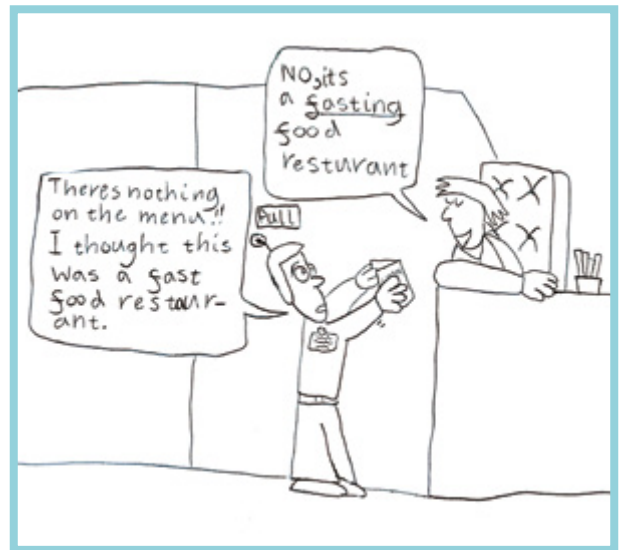 NO,its
a fasting
food
resturant
Theres nothing
on the menu!!
I thought this
was a fast
food restaur-
ant.
Pull